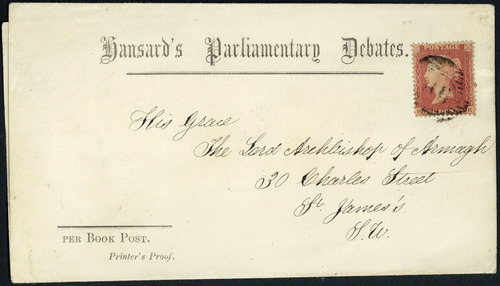 Hansard's Parliamentary Debates.
POSTAGE
His Grace
The Lord Archbishop of Armagh
30 Charles Street
St. James's
S.W.
PER BOOK POST.
Printer's Proof.